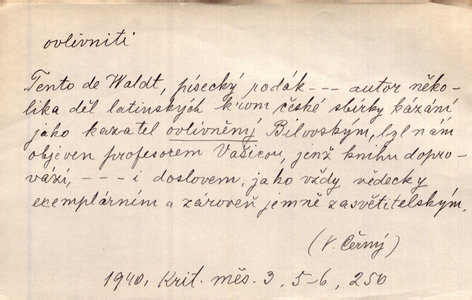 ovlivniti
Tento de Waldt, písecký rodák --- autor něko-
lika děl latinských krom české sbírky kázání
jako kazatel ovlivněný Bílovským, byl nám
objeven profesorem Vašicou, jenž knihu dopro-
vází, ---- i doslovem, jako vždy vědecky
exemplárním a zároveň jemně zasvětitelským.
(V. Černý)
1940, Krit. měs. 3, 5-6, 250